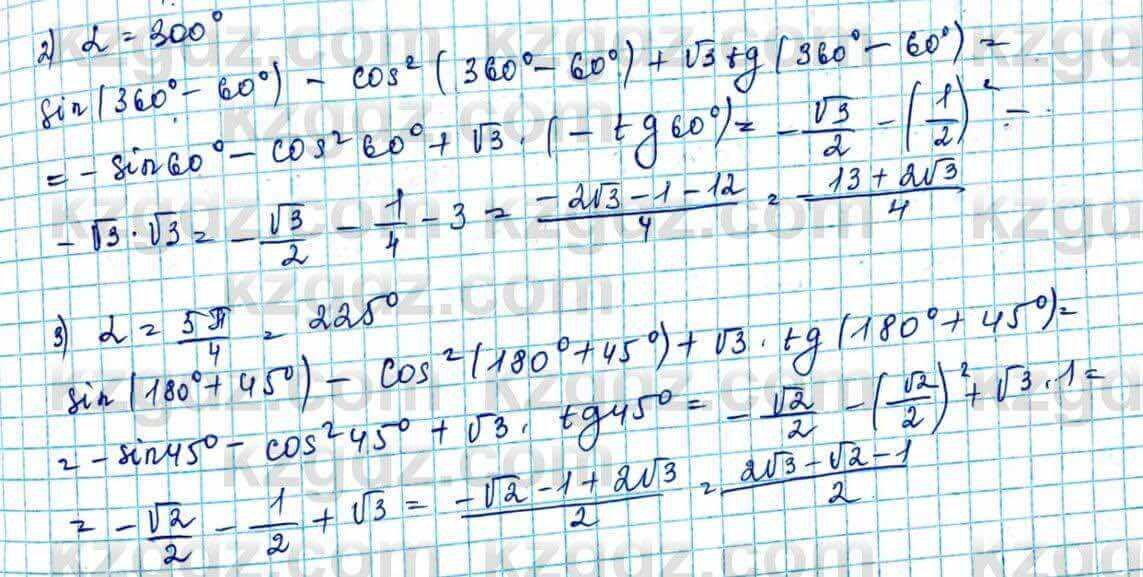 2) α = 300°
sin(360° - 60°) - cos² (360° - 60°) + √3 tg (360° - 60°) =
= - sin 60° - cos² 60° + √3 · (- tg 60°) = - √3/2 - (1/2)² -
- √3 · √3 = - √3/2 - 1/4 - 3 = (-2√3 - 1 - 12)/4 = - (13 + 2√3)/4
3) α = 5π/4 = 225°
sin(180° + 45°) - cos² (180° + 45°) + √3 · tg (180° + 45°) =
= - sin 45° - cos² 45° + √3 · tg 45° = - √2/2 - (√2/2)² + √3 · 1 =
= - √2/2 - 1/2 + √3 = (-√2 - 1 + 2√3)/2 = (2√3 - √2 - 1)/2
kzgdz.com